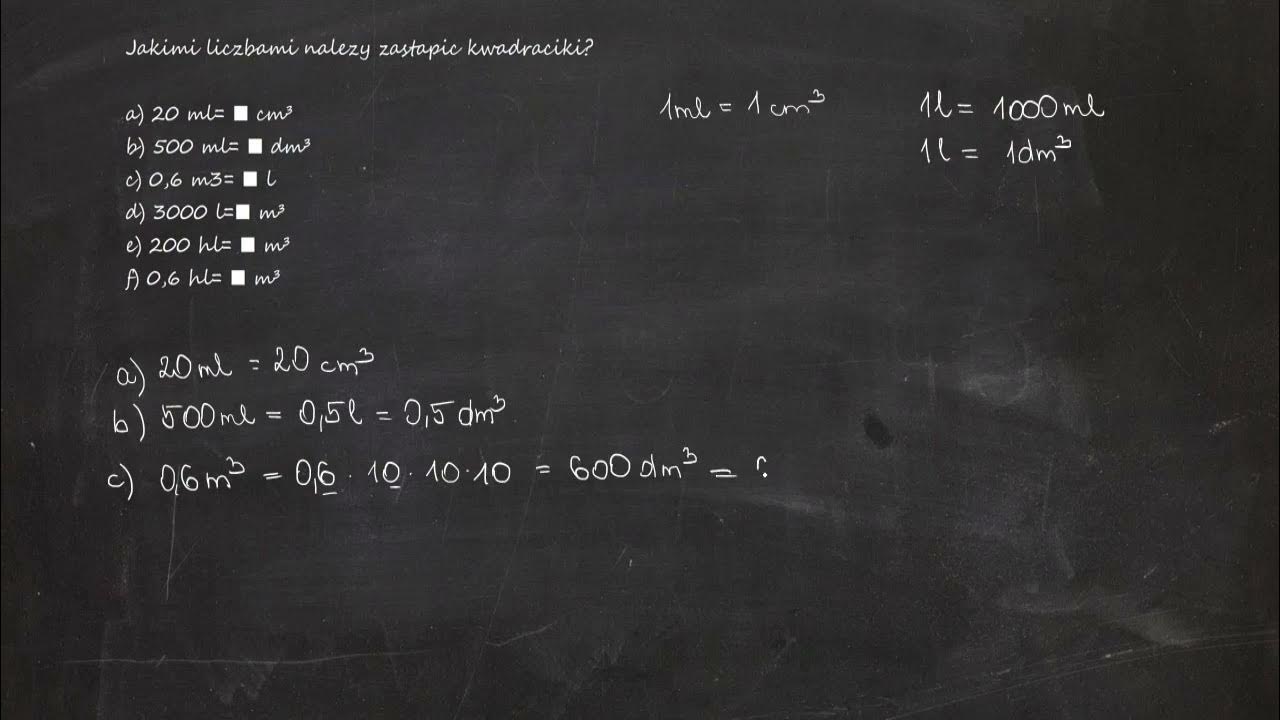 Jakimi liczbami nalezy zastapic kwadraciki?
a) 20 ml= ■ cm³
b) 500 ml= ■ dm³
c) 0,6 m3= ■ l
d) 3000 l=■ m³
e) 200 hl= ■ m³
f) 0,6 hl= ■ m³
1ml = 1 cm³
1l = 1000 ml
1l = 1dm³
a) 20 ml = 20 cm³
b) 500 ml = 0,5l = 0,5 dm³
c) 0,6 m³ = 0,6 · 10 · 10 · 10 = 600 dm³ = ?